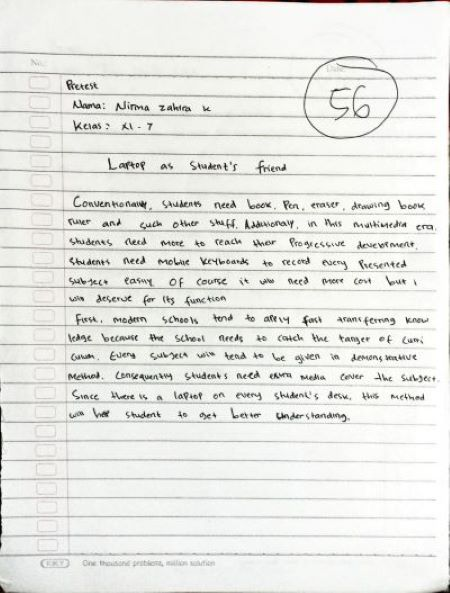 No.
Date.
Pretest
56
Nama: Nirma Zahira K
Kelas: XI - 7
Laptop as Student's friend
Conventionally, students need book, Pen, eraser, drawing book
ruler and such other stuff. Additionaly, in this multimedia era,
students need more to reach their Progressive
students need mobile keyboards to record every Presented
subject easily Of course it will need more cost but i
will deserve for its function
First, modern schools tend to apply fast transferring know
ledge because the school needs to catch the target of curri
culum. Every subject will tend to be given in demonstrative
Method. Consequently students need extra media cover the subject.
Since there is a laptop on every student's desk, this method
will student to get better Understanding.
One thousand problems, million solution